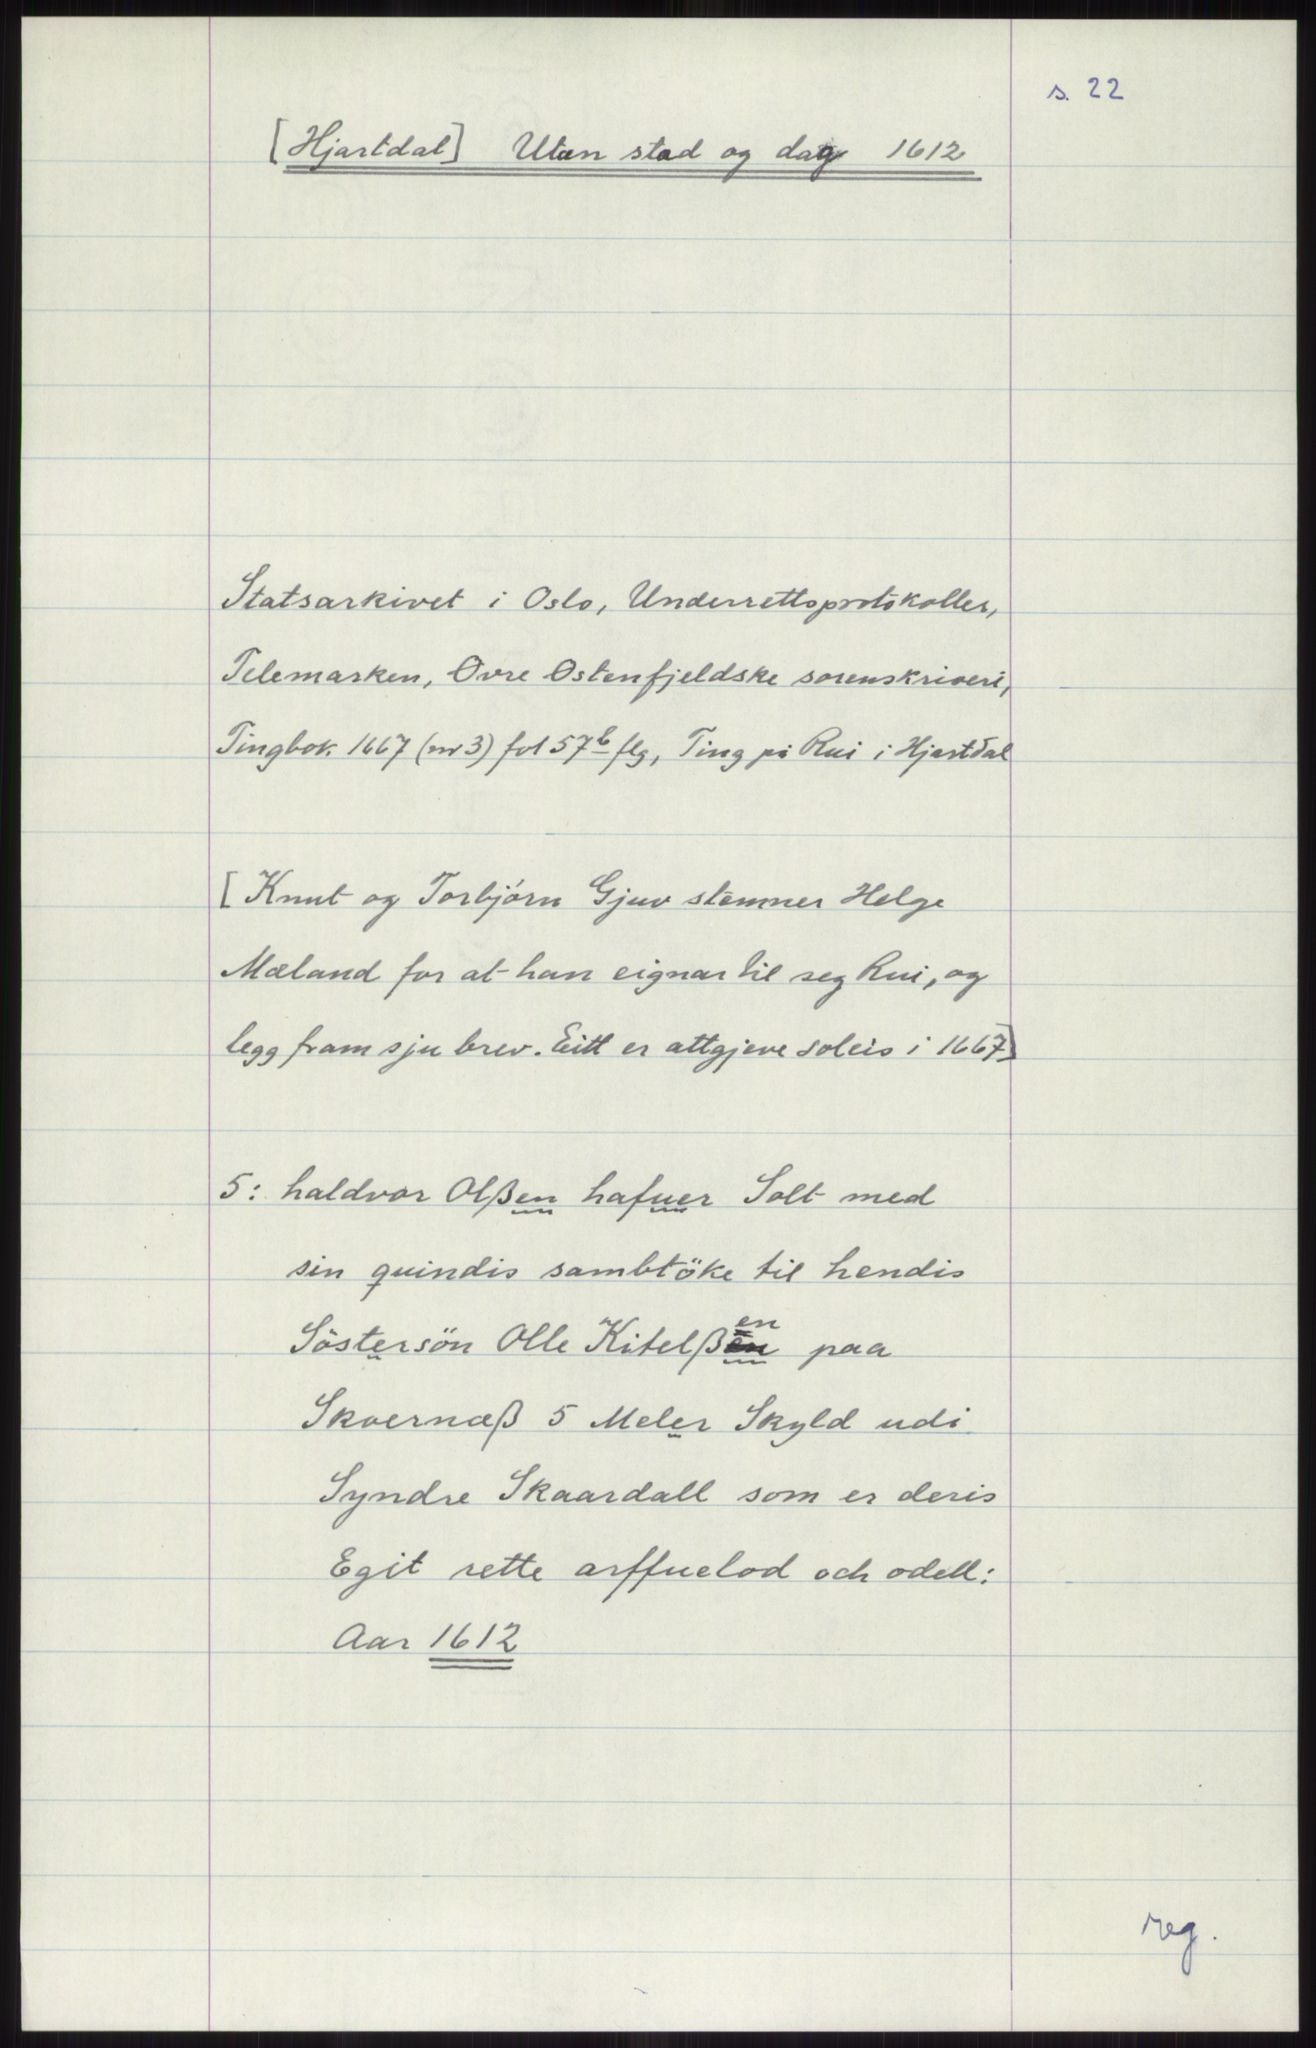 s. 22
[Hjartdal] Utan stad og dag 1612
Statsarkivet i Oslo, Underrettsprotokoller,
Telemarken, Øvre Østenfjeldske sorenskriveri,
Tingbok 1667 (nr 3) fol 57b flg, Ting på Rui i Hjartdal
[Knut og Torbjörn Gjuv stemner Helge
Mæland for at han eignar til seg Rui, og
legg fram sju brev. Eitt er attgjeve soleis i 1667]
5: haldvor Olßen hafuer Solt med
sin quindis sambtöke til hendis
Söstersön Olle Kitelßen paa
Skvernæß 5 Meler Skyld udi
Syndre Skaardall som er deris
Egit rette arffuelod och odell:
Aar 1612
reg.